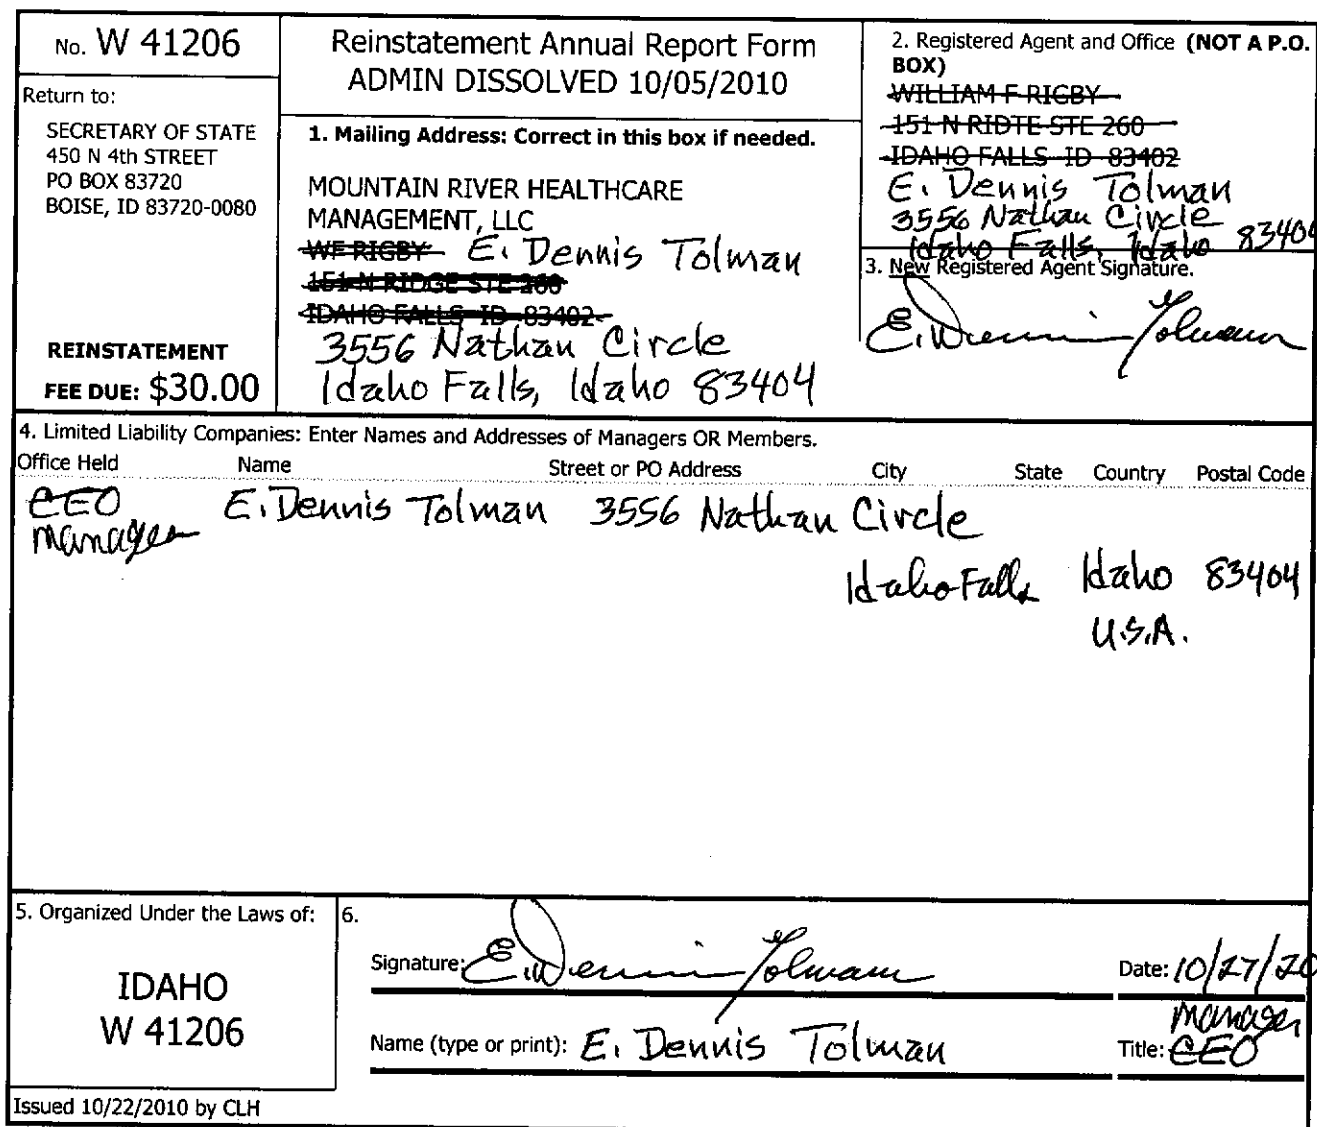 No. W 41206
Return to:
SECRETARY OF STATE
450 N 4th STREET
PO BOX 83720
BOISE, ID 83720-0080
REINSTATEMENT
FEE DUE: $30.00
Reinstatement Annual Report Form
ADMIN DISSOLVED 10/05/2010
1. Mailing Address: Correct in this box if needed.
MOUNTAIN RIVER HEALTHCARE
MANAGEMENT, LLC
WF RIGBY E. Dennis Tolman
151 N RIDGE STE 260
IDAHO FALLS ID 83402
3556 Nathan Circle
Idaho Falls, Idaho 83404
2. Registered Agent and Office (NOT A P.O.
BOX)
WILLIAM F RIGBY
151 N RIDTE STE 260
IDAHO FALLS ID 83402
E. Dennis Tolman
3556 Nathan Circle
Idaho Falls, Idaho 83404
3. New Registered Agent Signature.
E. Dennis Tolman
4. Limited Liability Companies: Enter Names and Addresses of Managers OR Members.
Office Held Name Street or PO Address City State Country Postal Code
CEO E. Dennis Tolman 3556 Nathan Circle
manager
Idaho Falls Idaho 83404
U.S.A.
5. Organized Under the Laws of:
IDAHO
W 41206
6.
Signature: E. Dennis Tolman Date: 10/27/20
manager
Name (type or print): E. Dennis Tolman Title: CEO
Issued 10/22/2010 by CLH